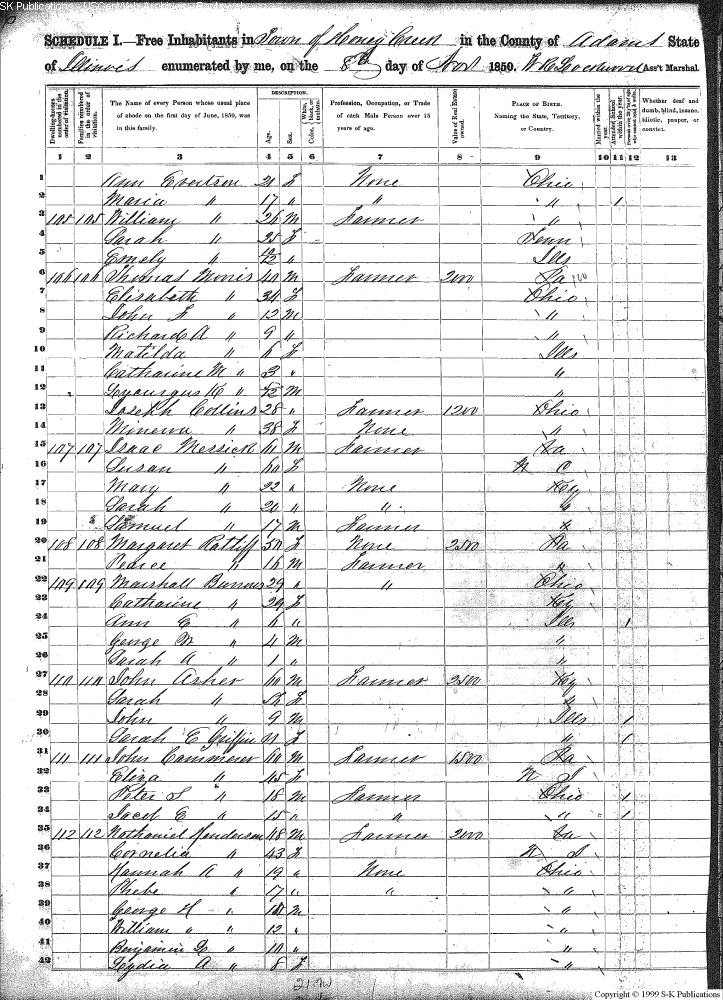 SCHEDULE I.—Free Inhabitants in Town of Honey Creek in the County of Adams State
of Illinois enumerated by me, on the 8th day of Nov 1850. Ass't Marshal
Dwelling-houses numbered in the order of visitation.
Families numbered in the order of visitation.
The Name of every Person whose usual place of abode on the first day of June, 1850, was in this family.
DESCRIPTION.
Age.
Sex.
Color, White, black, or mulatto.
Profession, Occupation, or Trade of each Male Person over 15 years of age.
Value of Real Estate owned.
PLACE OF BIRTH.
Naming the State, Territory, or Country.
Married within the year.
Attended School within the year.
Persons over 20 y'rs of age who cannot read & write.
Whether deaf and dumb, blind, insane, idiotic, pauper, or convict.
1 2 3 4 5 6 7 8 9 10 11 12 13
1 Ann Evertson 21 F None Ohio
2 Maria " 17 " " " 1
3 105 105 William " 26 M Farmer "
4 Sarah " 25 F Tenn
5 Emely " /12 " Ills
6 106 106 Thomas Morris 40 M Farmer 2000 Pa
7 Elisabeth " 34 F Ohio
8 John F " 12 M "
9 Richard A " 9 " "
10 Matilda " 6 F Ills
11 Catharine M " 3 " "
12 Lycurgus K " /12 M "
13 Joseph Collins 28 " Farmer 1200 Ohio
14 Minerva " 38 F None "
15 107 107 Isaac Messick 61 M Farmer
16 Susan " 60 F N C
17 Mary " 22 " None Ky
18 Sarah " 20 " " "
19 Samuel " 17 M Farmer "
20 108 108 Margaret Ratliff 50 F None 2500 Pa
21 Pearce " 16 M Farmer "
22 109 109 Marshall Burrows 29 " " Ohio
23 Catharine " 29 F Ky
24 Ann E " 6 " Ills 1
25 George W " 4 M "
26 Sarah A " 1 " "
27 110 110 John Asher 60 M Farmer 2500 Ky
28 Sarah " F "
29 John " 9 M Ills 1
30 Sarah E Griffin 11 F " 1
31 111 111 John Cammerer 60 M Farmer 1500 Pa
32 Eliza " 45 F N J
33 Peter S " 18 M Farmer Ohio 1
34 Jacob E " 15 " " " 1
35 112 112 Nathaniel Henderson 48 M Farmer 2000
36 Cornelia " 43 F N J
37 Hannah A " 19 " None Ohio
38 Phebe " 17 " " "
39 George H " M "
40 William " " 12 " "
41 Benjamin " 10 " "
42 Lydia A " 8 F "
Copyright © 1999 S-K Publications